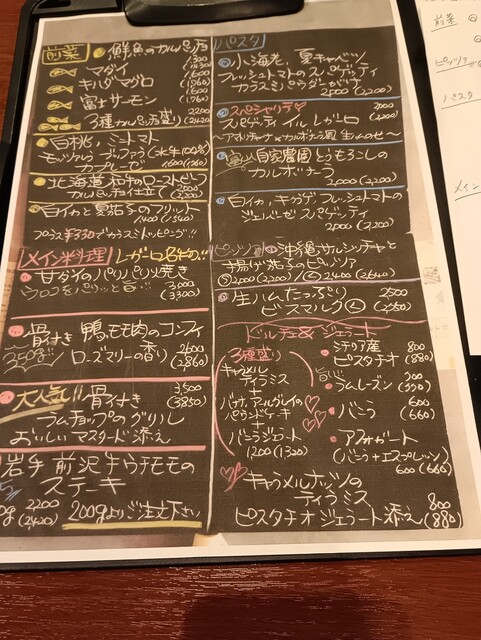 前菜
鮮魚のカルパッチョ
マダイ
キハダマグロ 1600 (1760)
富士サーモン 1600 (1760)
3種カルパッチョ盛り 2200 (2420)
白桃、ミニトマト
モッツァレラ ブッファラ(水牛100%)
カプレーゼ 1600 (1760)
北海道 和牛のローストビーフ
カルパッチョ仕立て 2000 (2200)
白イカと夏茄子のフリット
1400 (1540)
プラス¥330でカラスミトッピング!!
メイン料理
甘ダイのパリパリ焼き
ウロコをパリッと 3000
(3300)
骨付き 鴨モモ肉のコンフィ
250g ローズマリーの香り 2600
(2860)
大人気!! 骨付き 3500
(3850)
ラムチョップのグリル
おいしいマスタード添え
岩手 前沢牛ウチモモの
ステーキ
2200
(2420) 200gよりご注文下さい
パスタ
小海老、夏キャベツ
フレッシュトマトのスパゲッティ
カラスミパウダーがけ
2000 (2200)
スペシャリテ 2000
スパゲッティ イル レガーロ (2200)
〜アマトリチャーナ×カルボナーラ風
自家農園とうもろこしの
カルボナーラ
2000 (2200)
白イカ、キクラゲ、フレッシュトマトの
ジェノベーゼ スパゲッティ
2000 (2200)
ピッツァ 沖縄サルシッチャと
揚げ茄子のピッツァ
Ⓢ 2000 (2200) Ⓛ 2400 (2640)
生ハムたっぷり 2500
ビスマルク Ⓛ (2750)
ドルチェ&ジェラート
3種盛り
キャラメル
ティラミス
+
バナナ、アールグレイの
パウンドケーキ
+
バニラジェラート
1200 (1320)
シチリア産 800
ピスタチオ (880)
ラムレーズン
バニラ 600
(660)
アフォガート
(バニラ+エスプレッソ)
600 (660)
キャラメルナッツの
ティラミス
ピスタチオジェラート添え 800
(880)
前菜
ピッツァ
パスタ
メイン